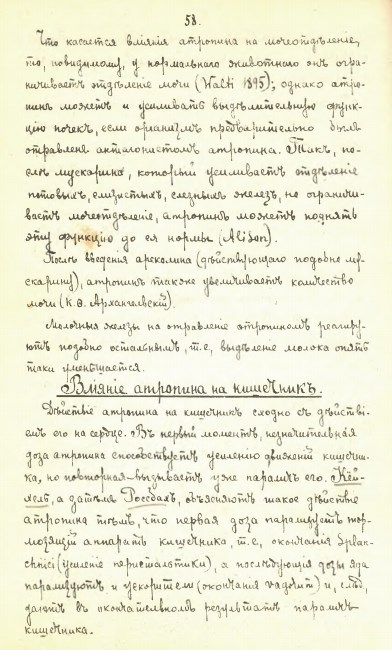 58.
Что касается вліянія атропина на мочеотдѣленіе,
то, повидимому, у нормальнаго животнаго онъ огра-
ничиваетъ отдѣленіе мочи (Walti 1895); однако атро-
пинъ можетъ и усиливать выдѣлительную функ-
цію почекъ, если организмъ предварительно былъ
отравленъ антагонистомъ атропина. Такъ, по-
слѣ мускарина, который усиливаетъ отдѣленіе
потовыхъ, слизистыхъ, слезныхъ железъ, но ограничи-
ваетъ мочеотдѣленіе, атропинъ можетъ поднять
эту функцію до ея нормы (Alison).
Послѣ введенія ареколина (дѣйствующаго подобно му-
скарину), атропинъ также увеличиваетъ количество
мочи (К. Ѳ. Архангельскій).
Молочныя железы на отравленіе атропиномъ реагиру-
ютъ подобно остальнымъ, т.е., выдѣленіе молока опять
таки уменьшается.
Вліяніе атропина на кишечникъ.
Дѣйствіе атропина на кишечникъ сходно съ дѣйстві-
емъ его на сердце. Въ первый моментъ, незначительная
доза атропина способствуетъ усиленію движеній кишечни-
ка, но повторная-вызываетъ уже параличъ его. Кей-
хель, а затѣмъ Россбахъ, объясняютъ такое дѣйствіе
атропина тѣмъ, что первая доза парализуетъ тор-
мозящій аппаратъ кишечника, т.е., окончанія Splan-
chnici (усиленіе перистальтики), а послѣдующія дозы яда
парализуютъ и ускорители (окончанія vagorum) и, слѣд.,
даютъ въ окончательномъ результатѣ параличъ
кишечника.